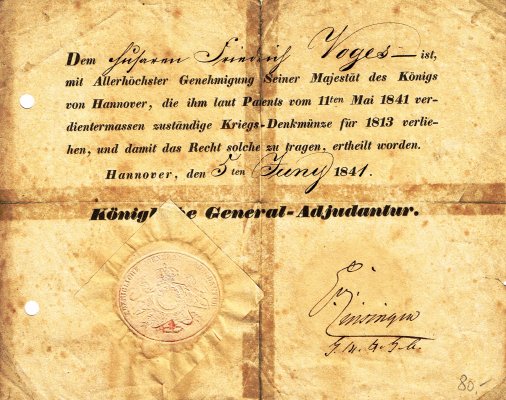 Dem Husaren Friedrich Voges — ist,
mit Allerhöchster Genehmigung Seiner Majestät des Königs
von Hannover, die ihm laut Patents vom 11ten Mai 1841 ver-
dientermassen zuständige Kriegs-Denkmünze für 1813 verlie-
hen, und damit das Recht solche zu tragen, ertheilt worden.
Hannover, den 5ten Juny 1841.
General-Adjudantur.
80.-